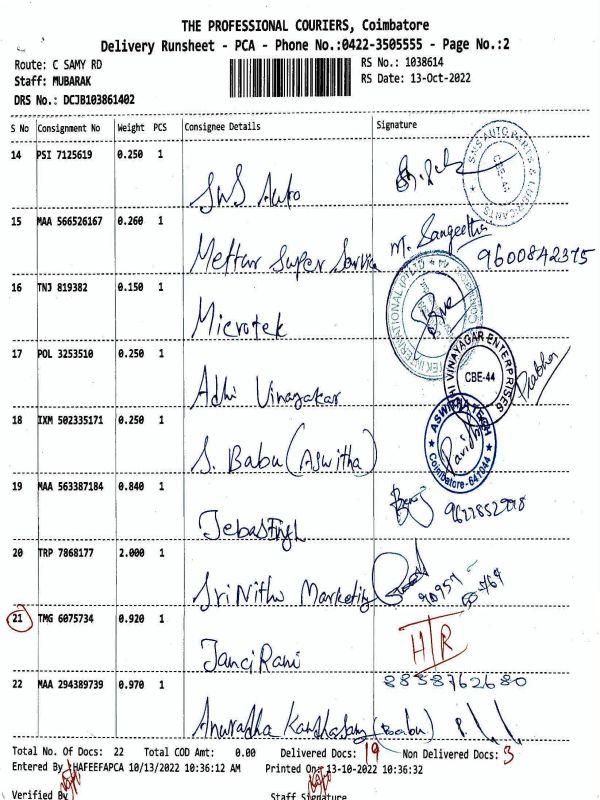 THE PROFESSIONAL COURIERS, Coimbatore
Delivery Runsheet - PCA - Phone No.:0422-3505555 - Page No.:2
Route: C SAMY RD
RS No.: 1038614
Staff: MUBARAK
RS Date: 13-Oct-2022
DRS No.: DCJB103861402
S No Consignment No Weight PCS Consignee Details Signature
14 PSI 7125619 0.250 1
SMS Auto
SMS AUTO PARTS & LUBRICANTS
CBE-44
15 MAA 566526167 0.260 1
Mettur Super Service M. Sangeetha
9600842375
16 TNJ 819382 0.150 1
Microtek
17 POL 3253510 0.250 1
Adhi Vinayakar
VINAYAGAR ENTERPRISES
CBE-44
Prabha
18 IXM 502335171 0.250 1
S. Babu (Aswitha)
Coimbatore-641044
19 MAA 563387184 0.840 1
20 TRP 7868177 2.000 1
Sri Nithu Marketing
21 TMG 6075734 0.920 1
Janci Rani
HTR
8838762680
22 MAA 294389739 0.970 1
Anuradha Kandhasamy (Babu)
Total No. Of Docs: 22 Total COD Amt: 0.00 Delivered Docs: 19 Non Delivered Docs: 3
Entered By HAFEEFAPCA 10/13/2022 10:36:12 AM Printed On: 13-10-2022 10:36:32
Verified By
Staff Signature